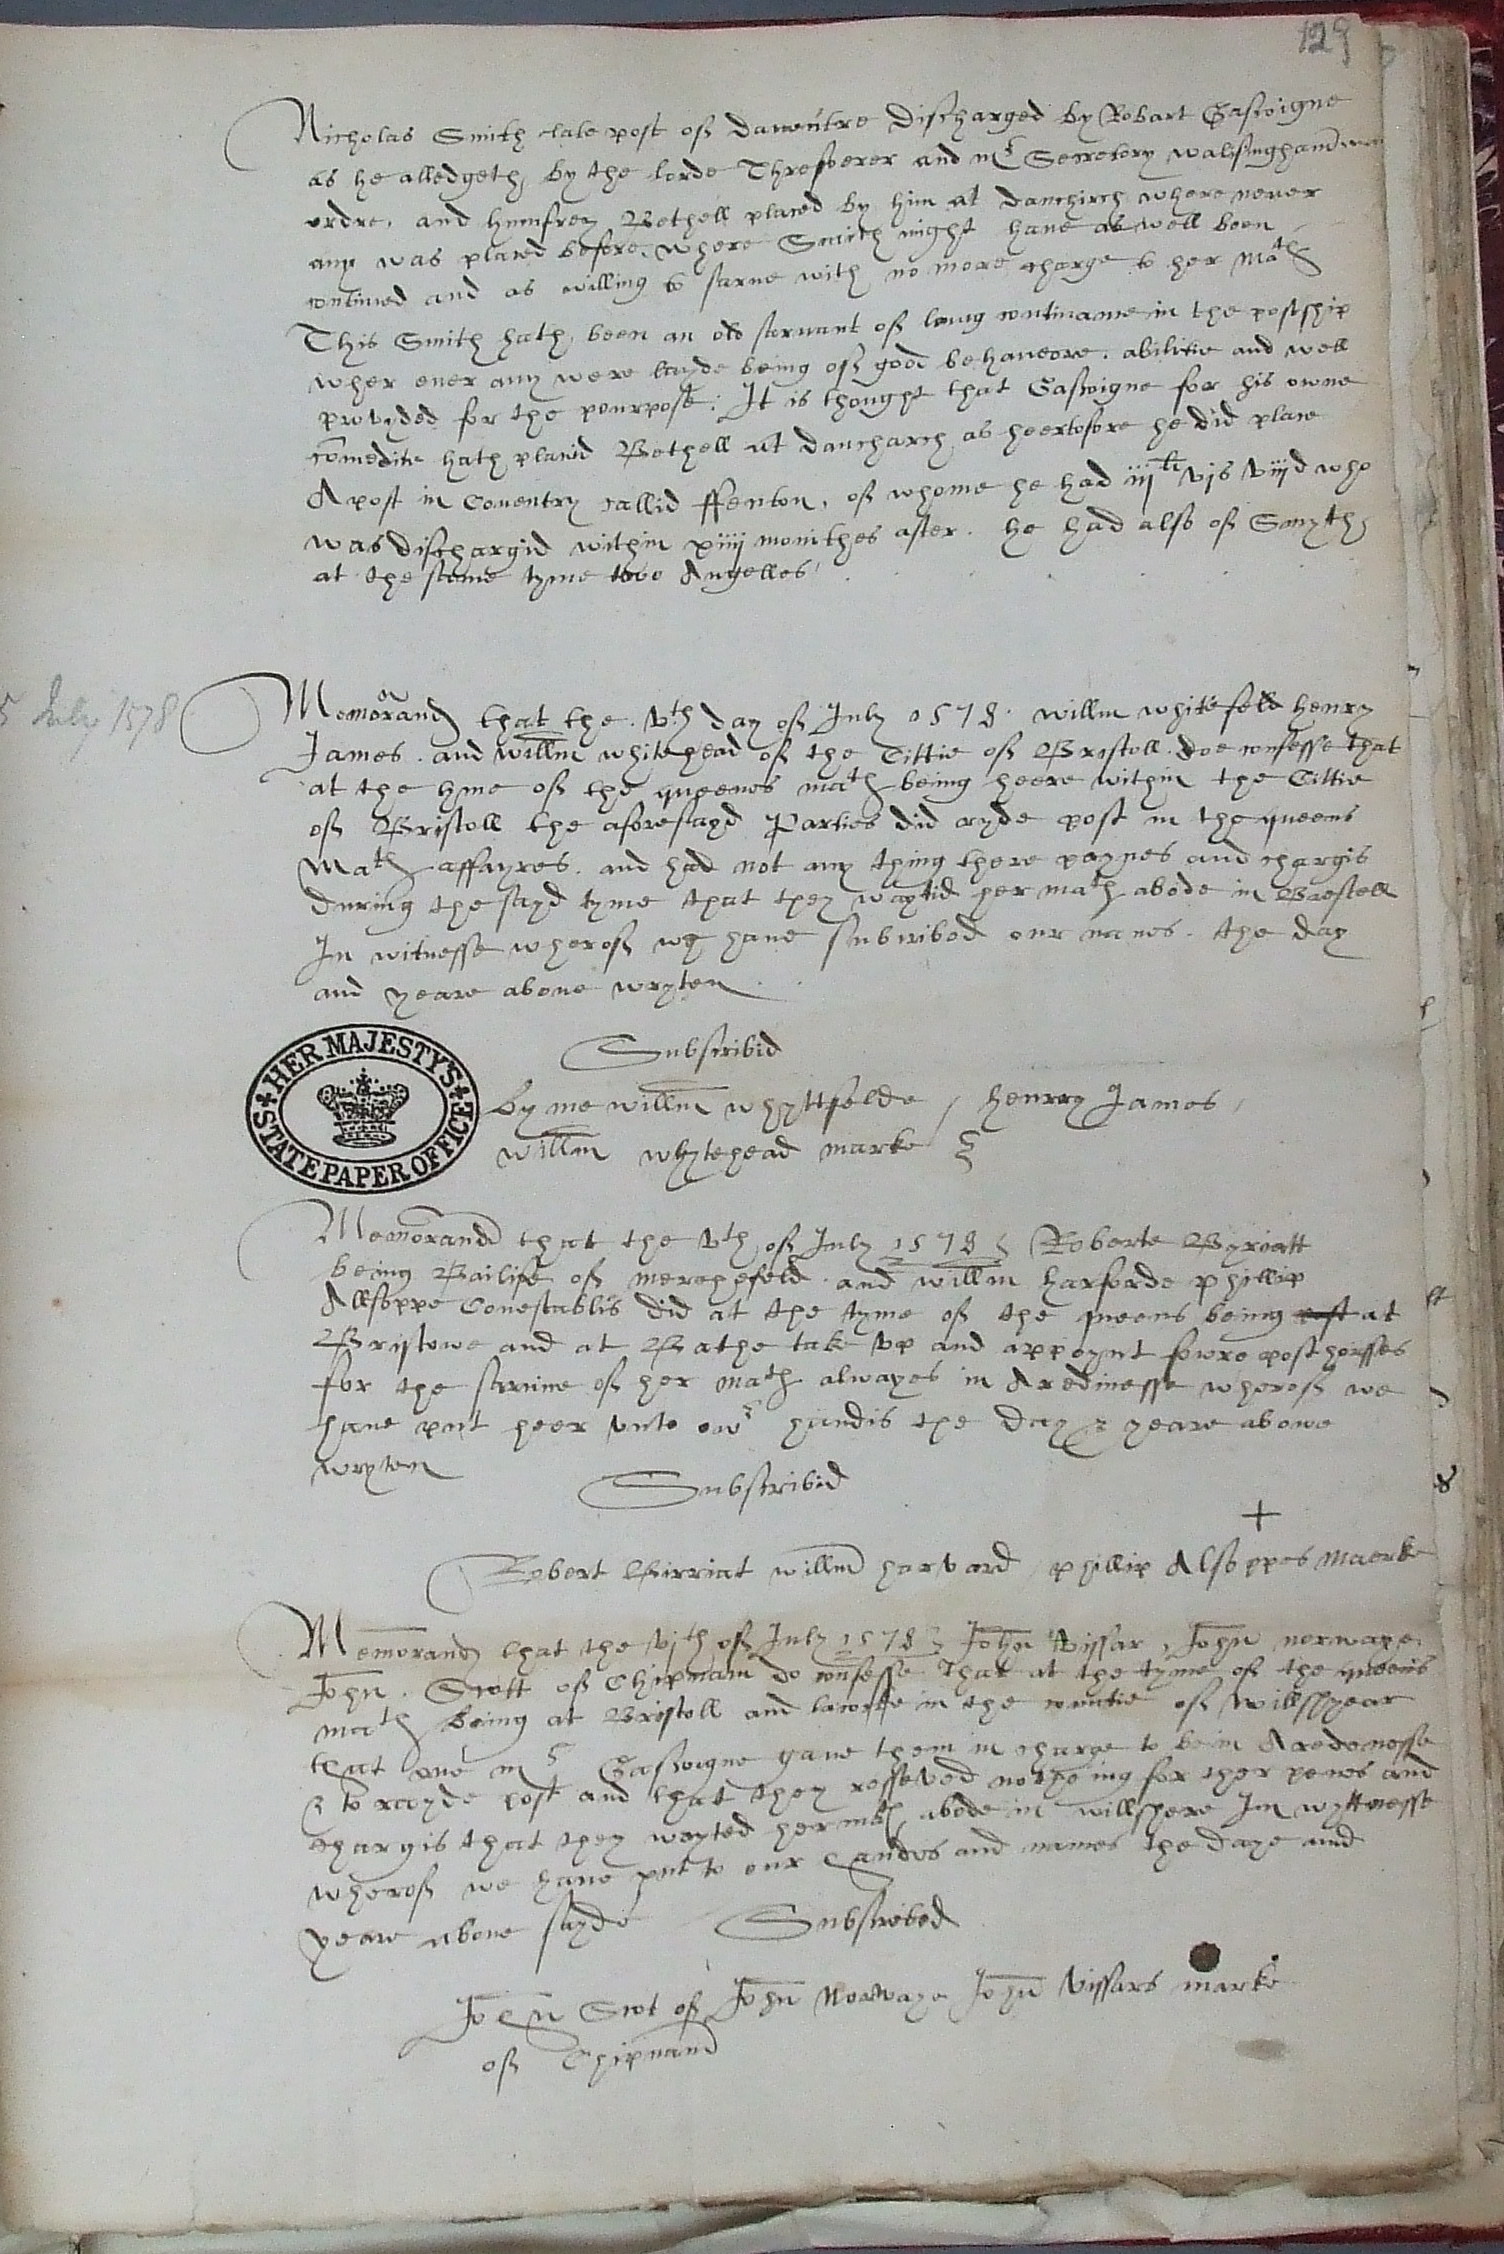 129
Nicholas Smith late post of dauentre discharged by Robart Gascoigne
as he alledgeth, by the lorde Thresorer and mr Secretory walsingham
ordre. and humfrey Bethell placed by him at dunchirch where never
any was placed before, where Smith might haue as well been
contined and as willing to sarue with no more charge to her Matie
This Smith hath been an old saruant of long continance in the postship
wher euer any were layde being of good behaueore. abilitie and well
provyded for the pourpose: It is thought that Gascoigne for his owne
comoditie hath placid Bethell at duncharch, as heertofore he did place
A post in Couentry callid ffenton, of whome he had iij li vjs viijd who
was dischargid within xiiij monthes after. he had also of Smyth,
at the same tyme two Angelles
5 July 1578
Memorand that the vth day of July 1578. willm whitefeld henry
James. and willm whitehead of the Cittie of Bristoll doe confesse that
at the tyme of the queenes matie being heere within the Cittie
of Bristoll the aforesayd Parties did ryde post in the queens
Matie affayres. and had not any thing there paynes and chargis
during the sayd tyme that they waytid her matie abode in Bristoll
In witnesse wherof we haue subcribed our names. the day
and yeare aboue wryten
Subscribid
HER MAJESTY'S STATE PAPER OFFICE
by me willm whyttfelde / henrey James /
willm whytehead marke
Memorand that the vth of July 1578 Roberte Byriatt
being Bailife of mereshfeld and willm harforde phillip
Allsoppe Conestablis did at the tyme of the queens being post at
Bristowe and at Bathe take vp and appoynt fowre post horsses
for the saruice of her matie alwayes in A redinesse wherof we
haue put heer vnto our handis the day & yeare aboue
wryten
Subscribid
Robert Birriat willm harvard phillip Alsoppes Maerke
Memorand that the vjth of July 1578 John Vissar, John norwaye
John. Scott of Chipnam do confesse That at the tyme of the queens
matie being at Bristoll and lacocke in the countie of willshyear
that one mr Gascoigne gaue them in charge to be in A redenesse
& to rayde post and that they resseved nothe ing for ther penes and
chargis that they wayted her matie abode in willshere Im wyttnesse
wherof we haue put to our handes and names the daye and
yeare aboue sayde Subscribed
John Scot of John Norwaye John Vissars marke
of Chipnam